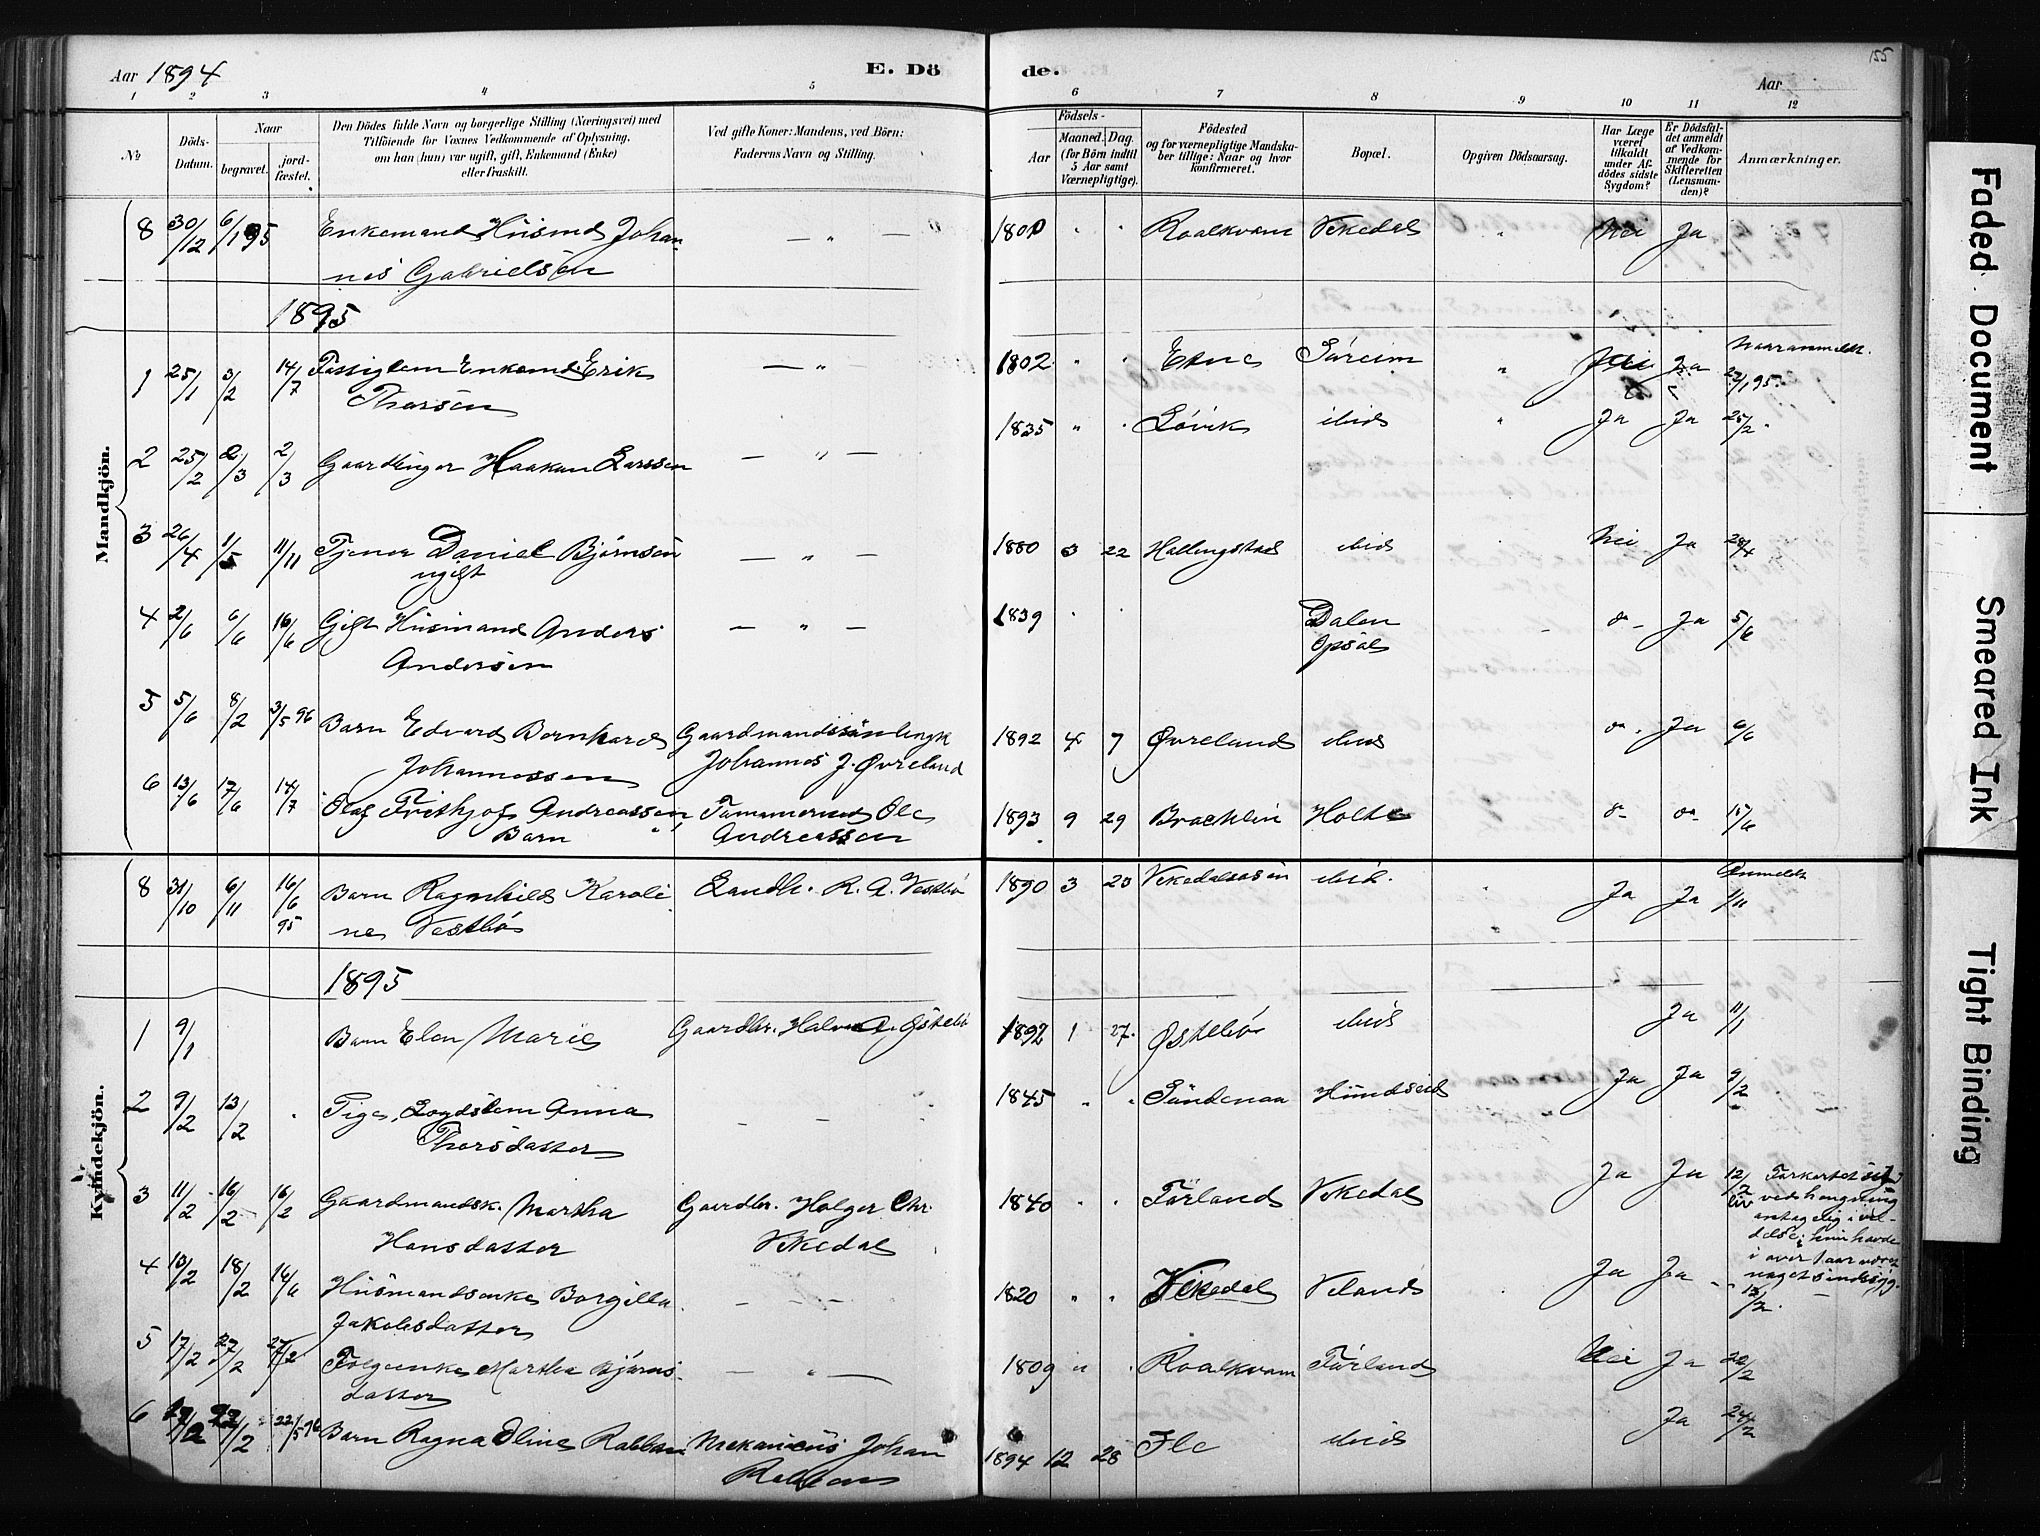 Aar 1894
E. Dö
de.
Aar
155
1 2 3 4 5 6 7 8 9 10 11 12
№
Döds-
Datum.
Naar
begravet.
jord-
fæstet.
Den Dödes fulde Navn og borgerlige Stilling (Næringsvei) med
Tilföiende for Voxnes Vedkommende af Oplysning.
om han (hun) var ugift, gift, Enkemand (Enke)
eller fraskilt.
Ved gifte Koner: Mandens, ved Börn:
Faderens Navn og Stilling.
Födsels-
Aar
Maaned. Dag.
(for Börn indtil
5 Aar samt
Værnepligtige).
Födested
og for værnepligtige Mandska-
ber tillige: Naar og hvor
konfirmeret.
Bopæl.
Opgiven Dödsaarsag.
Har Læge
været
tilkaldt
under Af-
dödes sidste
Sygdom?
Er Dödsfal-
det anmeldt
af Vedkom-
mende for
Skifteretten
(Lensman-
den)?
Anmærkninger.
Mandkjön.
8 30/12 6/1 95 Enkemand Husmd Johan — „ — 1800 Roalkvam Vikedal Nei Ja
nes Gabrielsen
1895
1 25/1 3/2 14/7 Fattiglem Enkemd. Erik — „ — 1802 „ Etne Søreim „ Nei Ja
Thorsen
2 25/2 2/3 2/3 Gaardbruger Haakon Larssen — „ — 1835 „ Løvik ibid „ Ja Ja 25/2
3 26/4 1/5 11/11 Tjener Daniel Bjørnsen — „ — 1880 3 22 Hallingstad ibid Nei Ja 28/4
ugift
4 2/6 6/6 16/6 Gift Husmand Anders — „ — 1839 Dalen do Ja 5/6
Andersen Opsal
5 5/6 8/2 3/5 96 Barn Edvard Bernhard 1892 4 7 Øvreland ibid do Ja 6/6
Johannessen Johannes J. Øvreland
6 13/6 17/6 14/7 Olaf Frithjof Andreassen Tømmermd Ole 1893 9 29 Holte do do 15/6
Barn Andreassen
Kvindekjön.
8 31/10 6/11 16/6 95 Barn Ragnhild Karoli Landh. R. A. Vestbø 1890 3 23 Vikedalsosen ibid. Ja Ja Anmeldt 1/11
ne Vestbø
1895
1 9/1 Barn Elen Marie Gaardbr. Halvor Østebø 1892 1 27. Østebø ibid Ja 11/1
2 9/2 13/2 Pige, Lægdslem Anna — — 1845 „ „ Sandenaa Hundseid Ja Ja 9/2
Thorsdatter
3 11/2 16/2 16/2 Gaardmandsk. Martha Gaardbr. Holger Chr. 1840 Førland Vikedal Ja Ja 12/2 Forkortet sit
Hansdatter Vikedal liv ved hængning
antagelig i vil-
delse; hun havde
i over 1 aar været
noget sindssyg.
4 13/2 18/2 16/6 Husmandsenke Borgilla — — 1820 „ „ Vikedal Veland Ja Ja 13/2
Jakobsdatter
5 17/2 27/2 27/2 Martha Bjørns — „ — 1809 „ Roalkvam Førland Nei Ja 20/2
datter
6 22/5 96 Barn Ragna Oline Mekanicus Johan 1894 12 28 Ile ibid Ja 24/2
Faded Document
Smeared Ink
Tight Binding